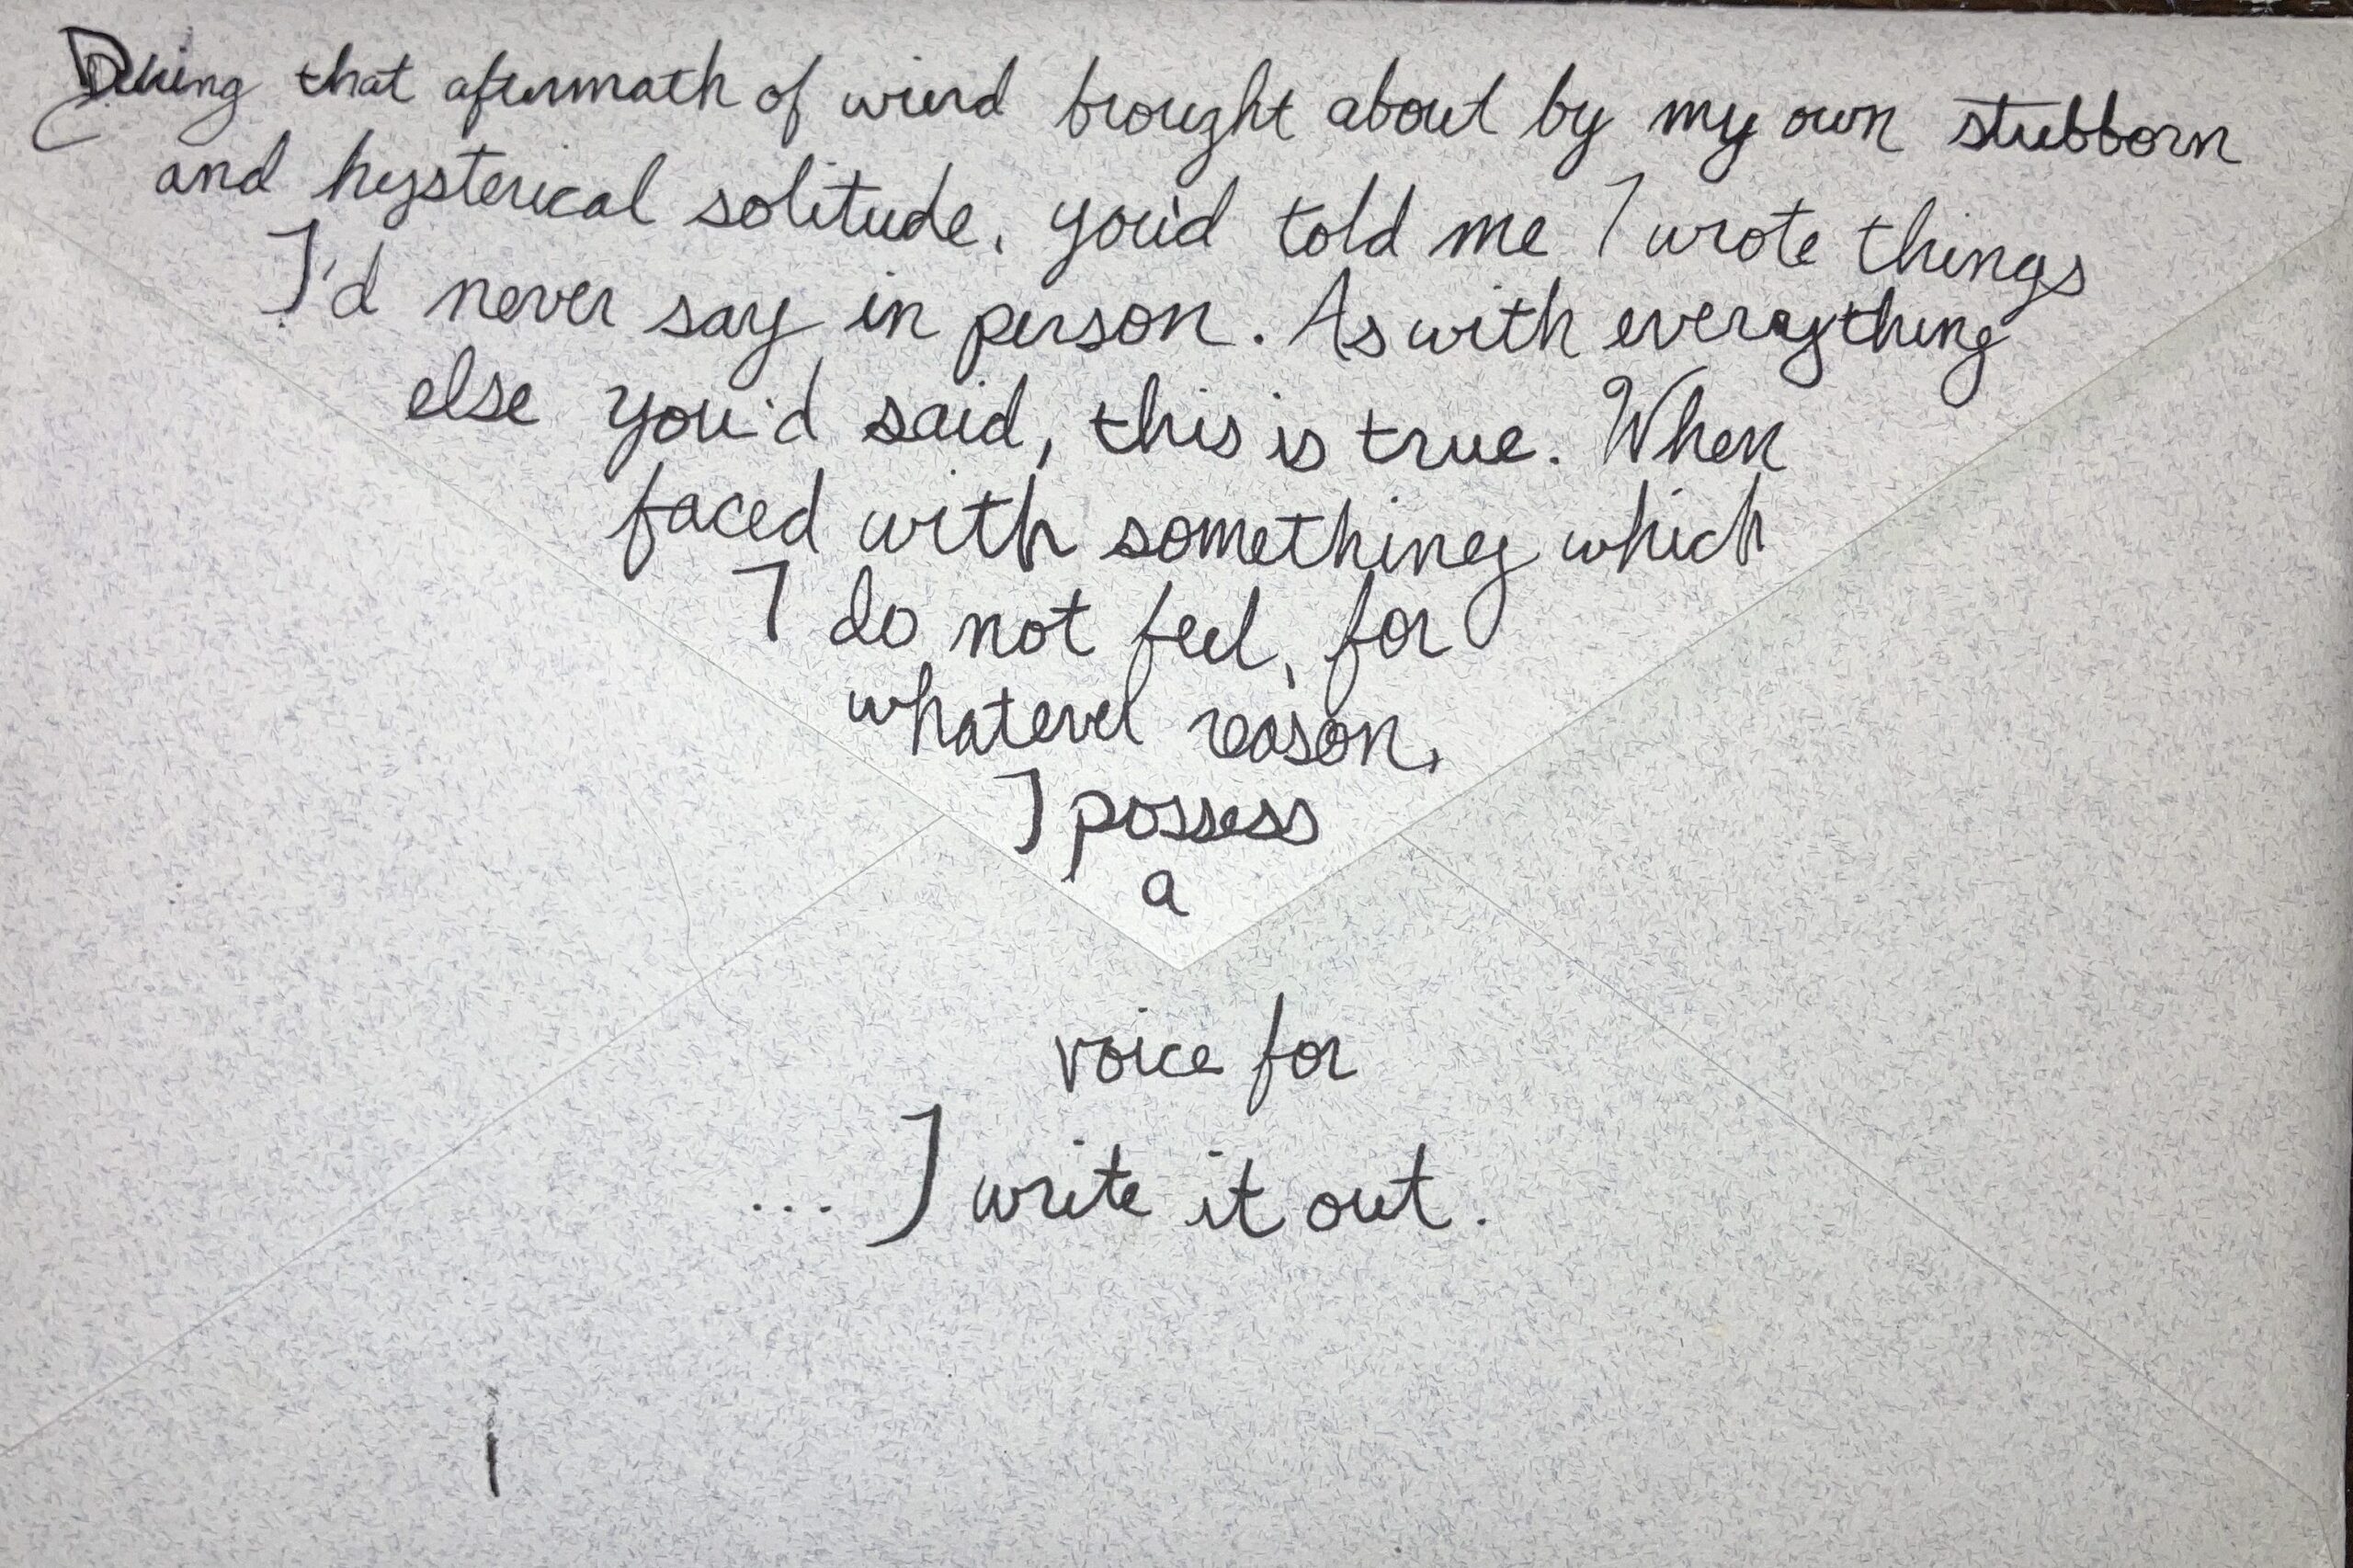 During that aftermath of wierd brought about by my own stubborn
and hysterical solitude, you'd told me I wrote things
I'd never say in person. As with everything
else you'd said, this is true. When
faced with something which
I do not feel, for
whatever reason,
I possess
a
voice for
... I write it out.